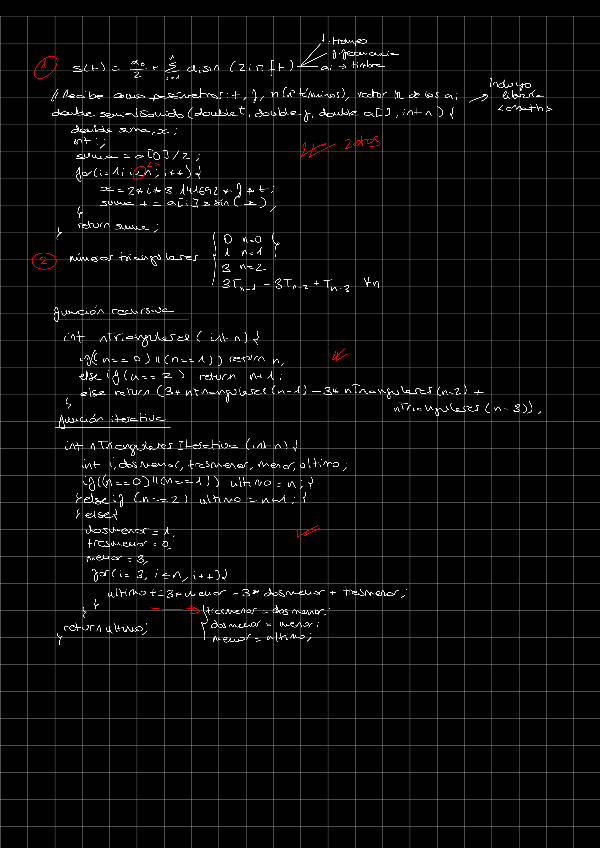 1 s(t) = a0/2 + Σ i=1 ai sin (2iπft)
t: tiempo
f: frecuencia
ai → timbre
// Recibe como parámetros: t, f, n (nº términos), vector de los ai
→ Incluyo librería <cmath>
double senalSonido (double t, double f, double a[], int n) {
double suma, x;
int i;
suma = a[0]/2;
for(i=1; i<=n; i++) {
x = 2*i*3.141692*f*t;
suma += a[i]*sin(x);
}
return suma;
}
2 números triangulares
0 n=0
1 n=1
3 n=2
3Tn-1 - 3Tn-2 + Tn-3 ∀n
función recursiva
int nTriangulares (int n) {
if((n==0)||(n==1)) return n;
else if (n==2) return n+1;
else return (3*nTriangulares(n-1) - 3*nTriangulares(n-2) +
nTriangulares(n-3));
}
función iterativa
int nTriangularesIterativa (int n) {
int i, dosmenor, tresmenor, menor, ultimo;
if((n==0)||(n==1)) ultimo = n; {
} else if (n==2) ultimo = n+1; {
} else {
dosmenor = 1;
tresmenor = 0;
menor = 3;
for(i=3; i<=n; i++) {
ultimo += 3*menor - 3*dosmenor + tresmenor;
} }
tresmenor = dosmenor;
dosmenor = menor;
menor = ultimo;
return ultimo;
}